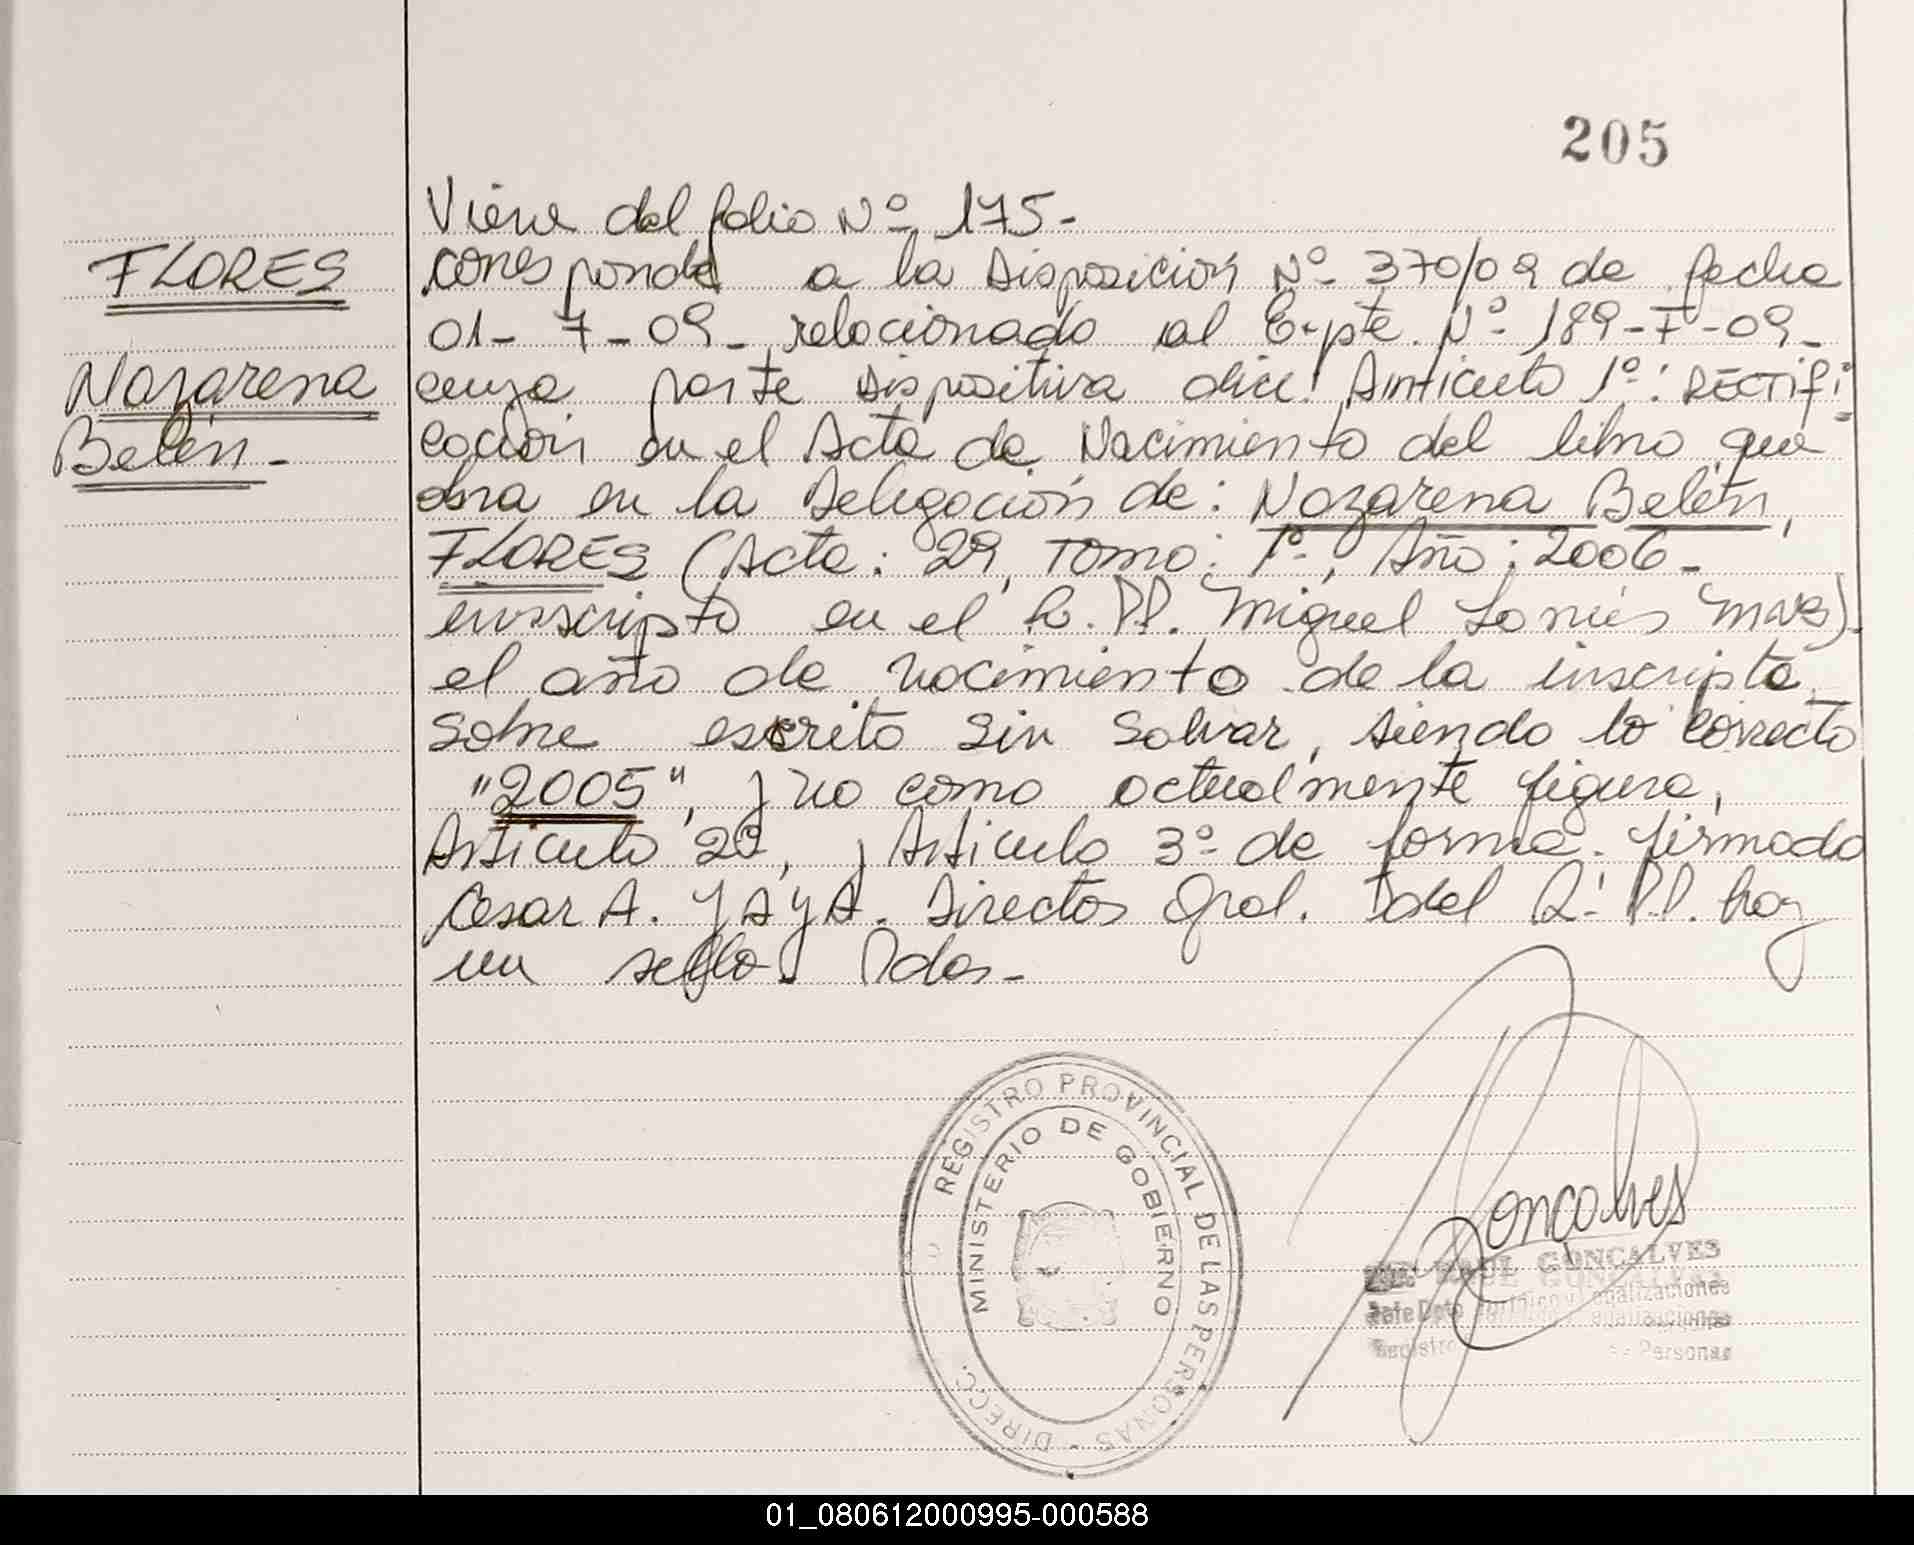 205
Viene del folio Nº 175-
FLORES
corresponde a la Disposición Nº 370/09 de fecha
01-7-09- relacionado al Expte. Nº 189-F-09-
Nazarena
cuya parte dispositiva dice: Artículo 1º: RECTIFI
Belén-
cación en el Acta de Nacimiento del libro que
obra en la Delegación de: Nazarena Belén,
FLORES (Acta: 29, Tomo: 1º, Año: 2006-
inscripto en el R. PP. Miguel
el año de nacimiento de la inscripta,
sobre escrito sin salvar, siendo lo correcto
"2005", y no como actualmente figura,
Artículo 2º, y Artículo 3º de forma. firmado
Cesar A. YAYA. Director Gral. Del R. PP. hay
un sello.
REGISTRO PROVINCIAL DE LAS PERSONAS - DIRECC.
MINISTERIO DE GOBIERNO
Goncalves
RAUL GONCALVES
Jefe Dpto Jurídico y Legalizaciones
Registro Personas
01_080612000995-000588